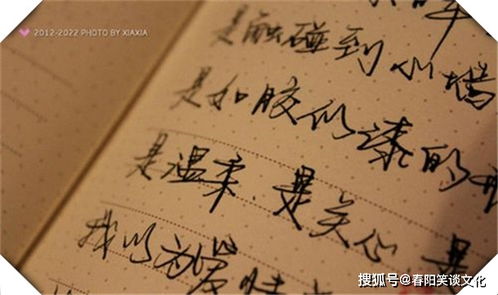 2012-2022 PHOTO BY XIAXIA
是触碰到小墙
是如胶似漆的
是温柔.是关心 是
我以为爱情
搜狐号@春阳笑谈文化